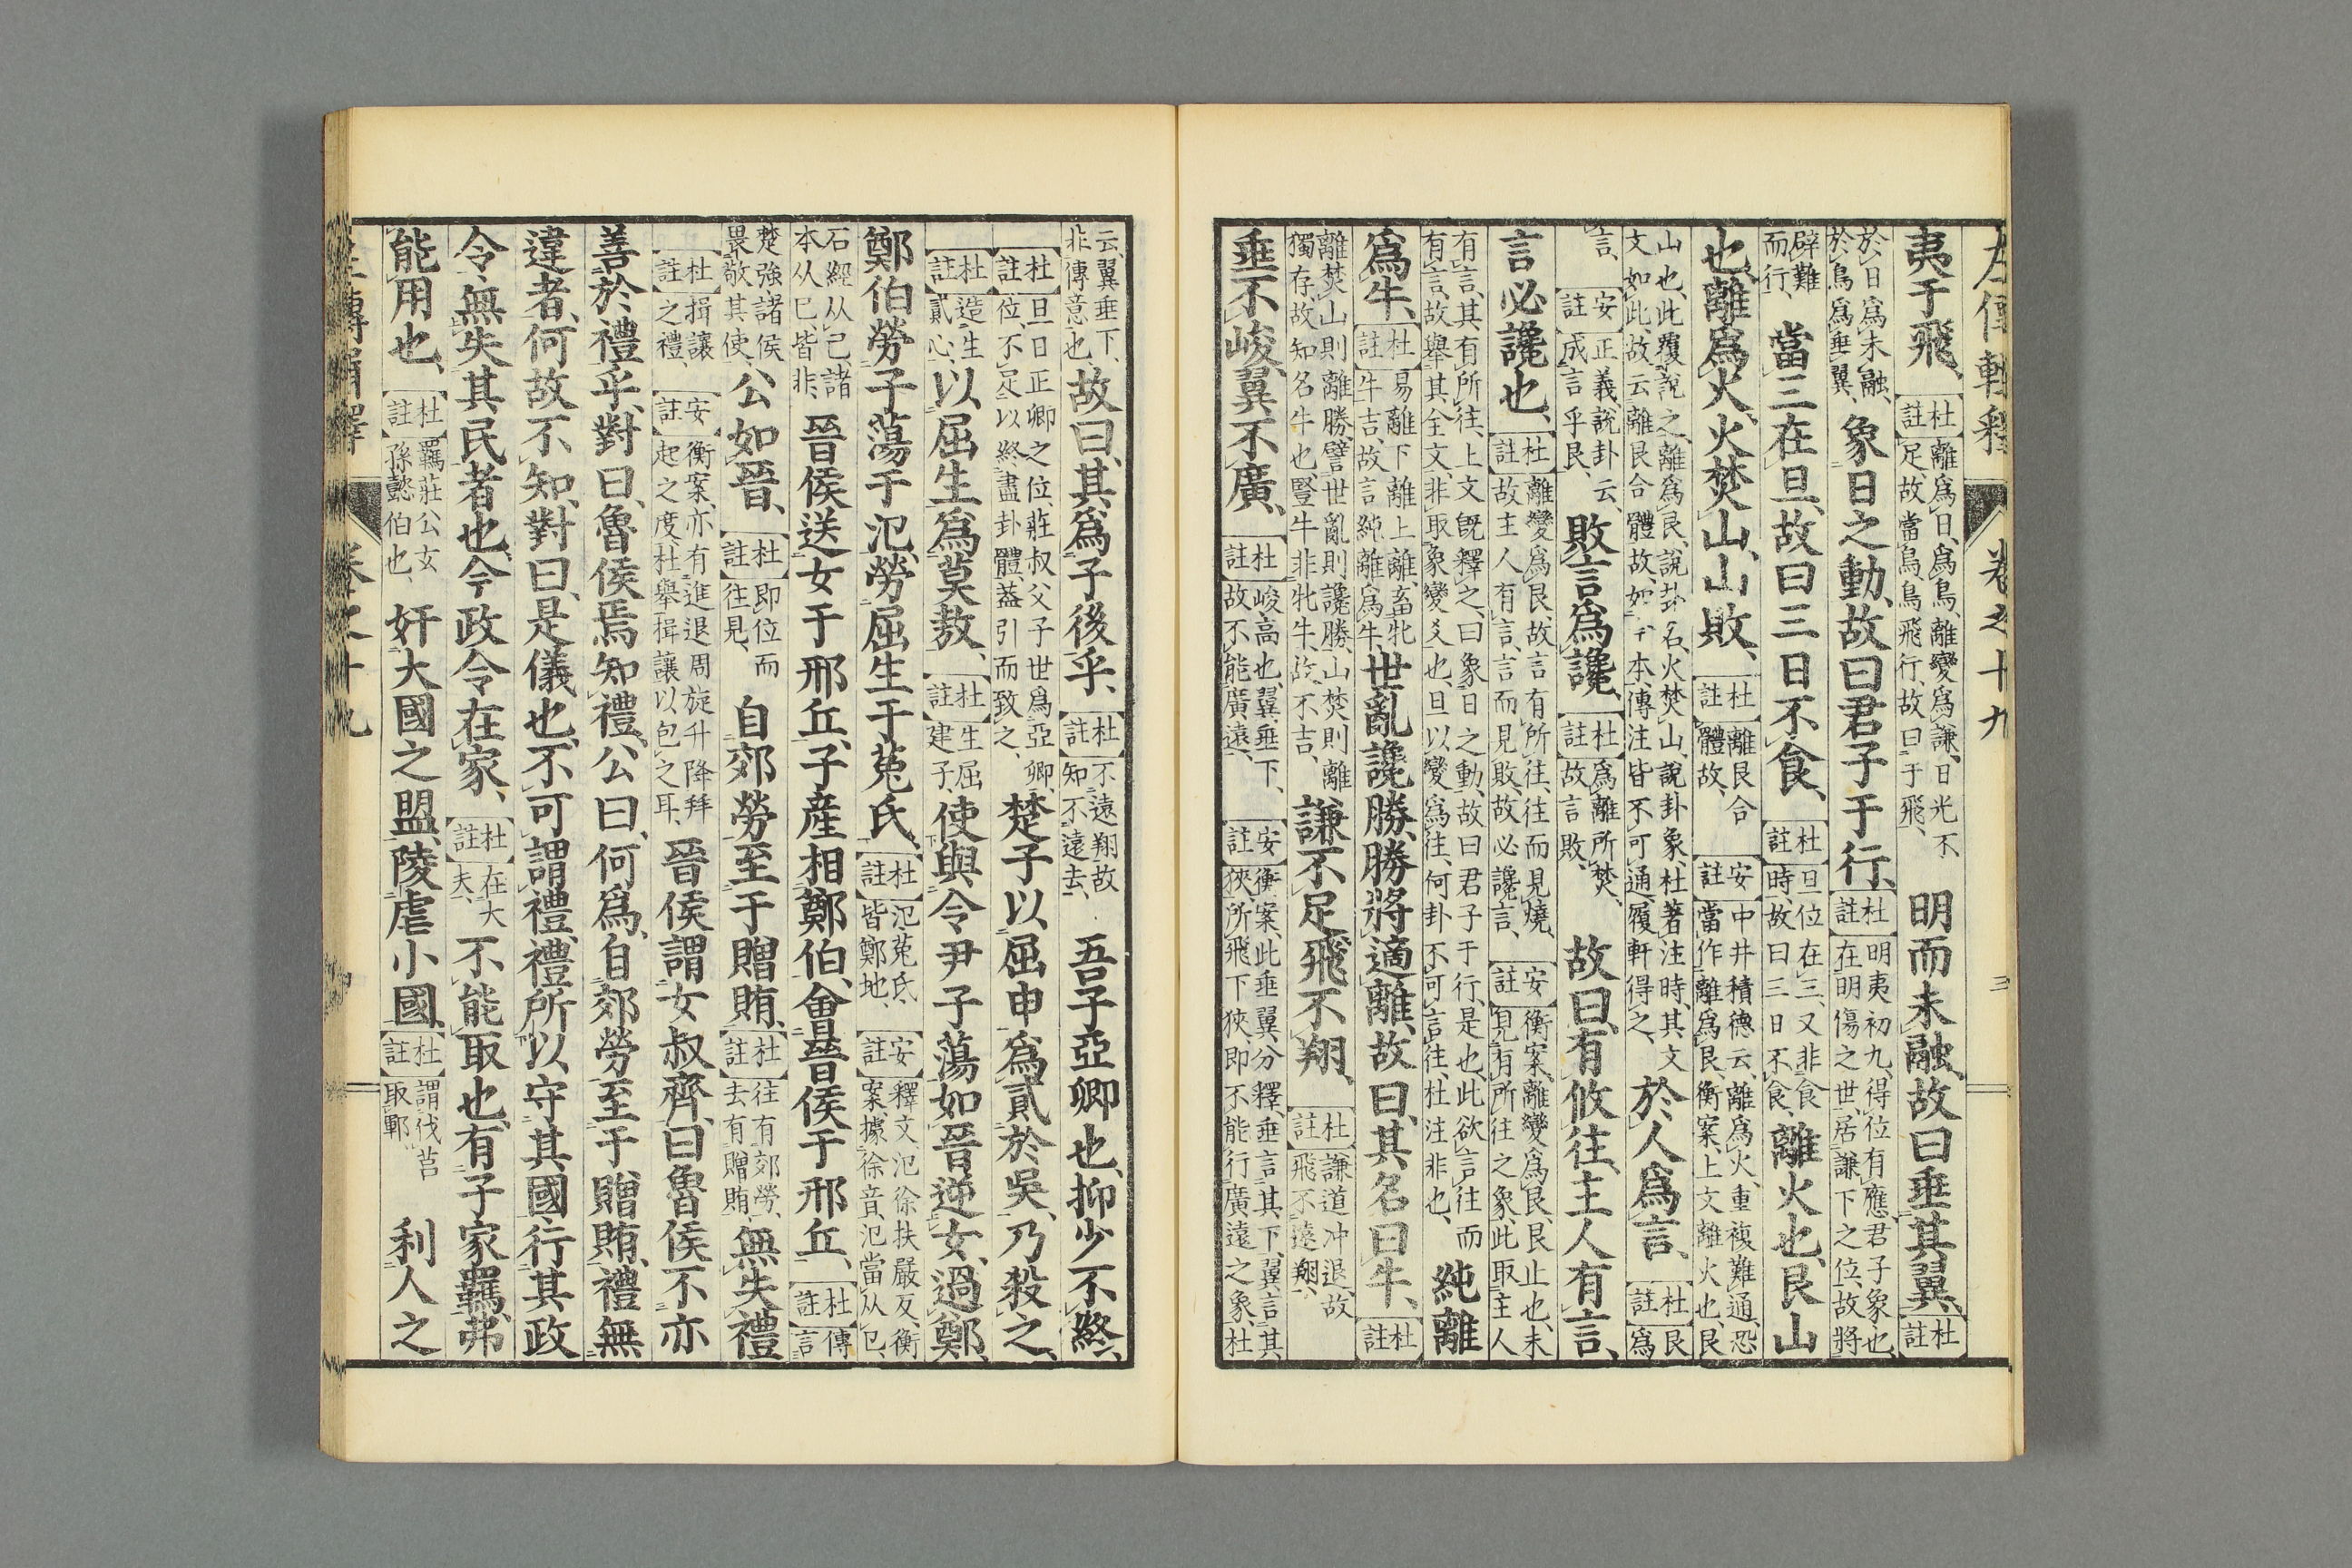 左傳輯釋 卷之十九 三
夷于飛、杜註離爲日、爲鳥、離變爲謙、日光不足、故當鳥、鳥飛行、故曰于飛、明而未融、故曰垂其翼、杜註
於日爲未融、於鳥爲垂翼、象日之動、故曰君子于行、杜註明夷初九、得位有應、君子象也、在明傷之世、居謙下之位、故將
辟難而行、當三在旦、故曰三日不食、杜註旦位在三、又非食時、故曰三日不食、離火也、艮山
也、離爲火、火焚山、山敗、杜註離艮合體故、安註中井積德云、離爲火、重複難通、恐當作離爲艮、衡案、上文離火也、艮
山也、此覆說之、離爲艮、說卦名、火焚山、說卦象、杜著注時、其文文如此、故云離艮合體故、如本、傳注皆不可通、履軒得之、於人爲言、杜註艮爲
言、安註正義說卦云、成言乎艮、敗言爲讒、杜註爲離所焚、故言敗、故曰、有攸往、主人有言、
言必讒也、杜註離變爲艮、故言有所往、往而見燒、故主人有言、言而見敗、故必讒言、安註衡案、離變爲艮、艮止也、未見有所往之象、此取主人
有言、其有所往、上文既釋之、曰象日之動、故曰君子于行、是也、此欲言往而有言、故舉其全文、非取象變爻也、且以變爲往、何卦不可言往、杜注非也、純離
爲牛、杜註易離下離上離、畜牝牛吉、故言純離爲牛、世亂讒勝、勝將適離、故曰、其名曰牛、杜註
離焚山則離勝、譬世亂則讒勝、山焚則離獨存、故知名牛也、豎牛非牝牛、故不吉、謙不足、飛不翔、杜註謙道冲退、故飛不遠翔、
垂不峻、翼不廣、杜註峻高也、翼垂下、故不能廣遠、安註衡案、此垂翼分釋、垂言其下、翼言其狹、所飛下狹、即不能行廣遠之象、杜
云、翼垂下、非傳意也、故曰、其爲子後乎、杜註不遠翔故知不遠去、吾子亞卿也、抑少不終、
杜註旦日正卿之位、莊叔父子世爲亞卿、位不足以終盡卦體、蓋引而致之、楚子以屈申爲貳於吳、乃殺之、
杜註造生貳心、以屈生爲莫敖、杜註生屈建子、使與令尹子蕩如晉逆女、過鄭、
鄭伯勞子蕩于汜、勞屈生于菟氏、杜註汜菟氏、皆鄭地、安註釋文、汜徐扶嚴反、衡案、據徐音、汜當从㔾、
石經从己、諸本从巳、皆非、晉侯送女于邢丘、子産相鄭伯、會晉侯于邢丘、杜註傳言
楚強諸侯畏敬其使、公如晉、杜註即位而往見、自郊勞至于贈賄、杜註往有郊勞、去有贈賄、無失禮
杜註揖讓之禮、安註衡案、亦有進退周旋升降拜起之度、杜舉揖讓以包之耳、晉侯謂女叔齊、曰魯侯不亦
善於禮乎、對曰、魯侯焉知禮、公曰、何爲、自郊勞至于贈賄、禮無
違者、何故不知、對曰、是儀也、不可謂禮、禮所以守其國、行其政
令、無失其民者也、今政令在家、杜註在大夫、不能取也、有子家羈、弗
能用也、杜註羈莊公玄孫懿伯也、奸大國之盟、陵虐小國、杜註謂伐莒取鄆、利人之
左傳輯釋 卷之十九